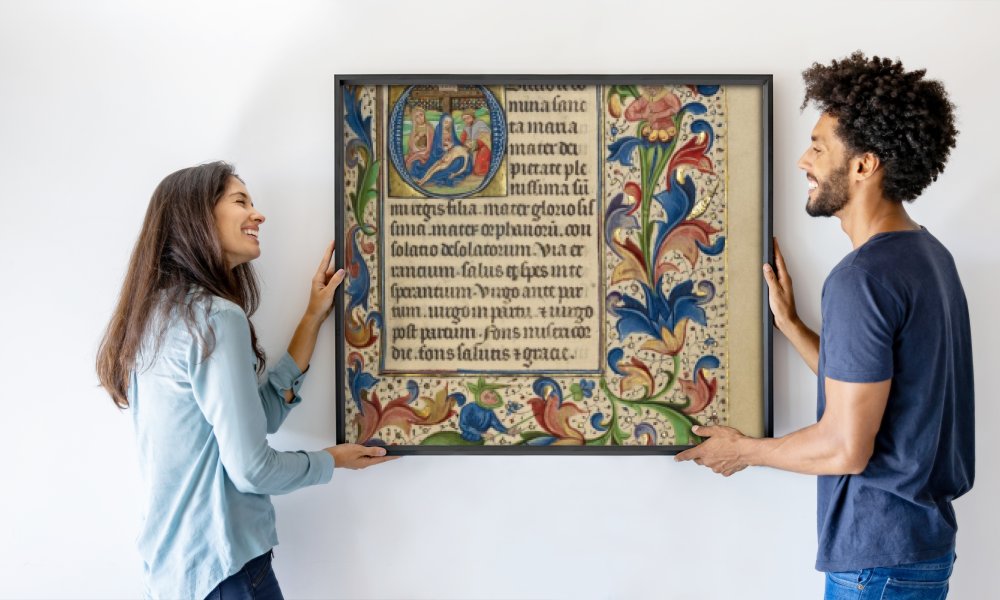 mina sanc
ta maria
mater dei
pietate ple
nissima sū
mi regis filia. mater gloriosis
sima. mater orphanorū. con
solatio desolatorum. Via er
rancium. salus et spes in te
sperantium. Virgo ante par
tum. uirgo in partu. ⁊ uirgo
post partum. Fons miserico
die. fons salutis ⁊ gracie.